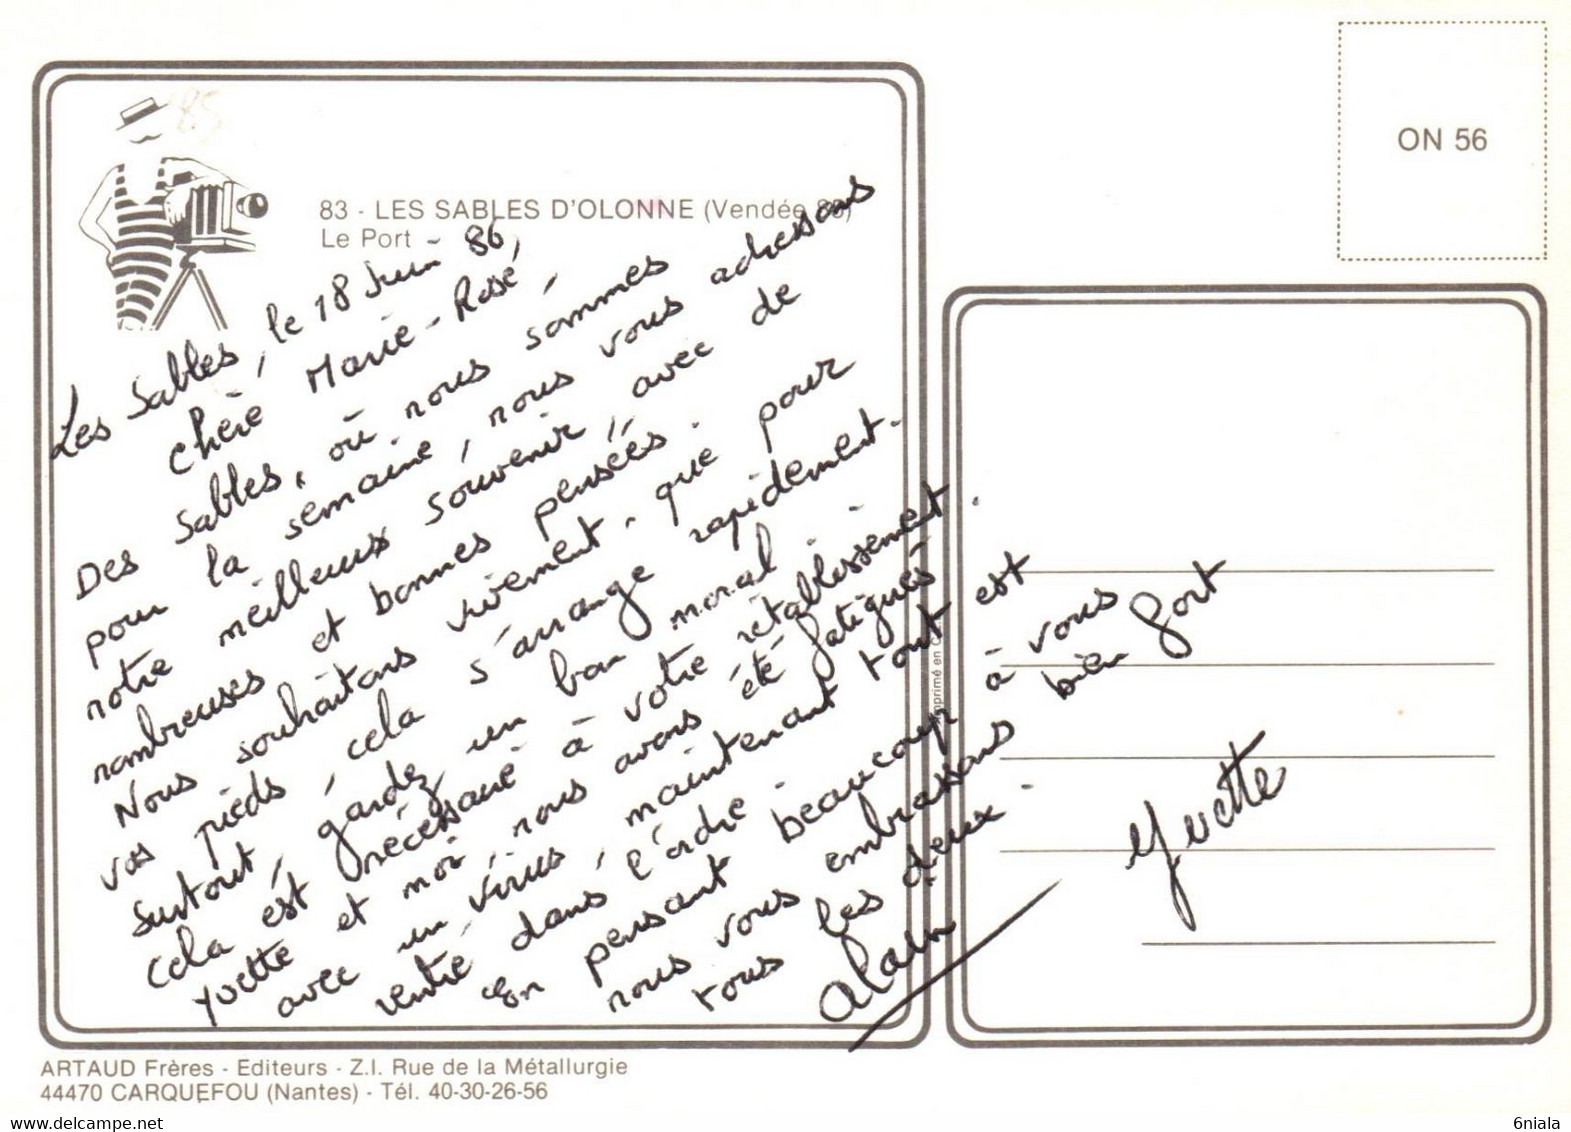 ON 56
83 - LES SABLES D'OLONNE (Vendée
Le Port -
85
Les Sables, le 18 Juin 86,
chère Marie-Rose,
Des Sables, où nous sommes
pour la semaine, nous vous adressons
notre meilleux souvenir, avec de
nombreuses et bonnes pensées.
Nous souhaitons vivement, que pour
vos pieds, cela s'arrange rapidement.
Surtout, gardez un bon moral
cela est nécessaire à votre rétablissement.
Yvette et moi, nous avons été fatigués
avec un virus, maintenant tout est
rentré dans l'ordre.
En pensant beaucoup à vous
nous vous embrassons bien fort
tous les deux.
Alain
Yvette
ARTAUD Frères - Editeurs - Z.I. Rue de la Métallurgie
44470 CARQUEFOU (Nantes) - Tél. 40-30-26-56
6niala